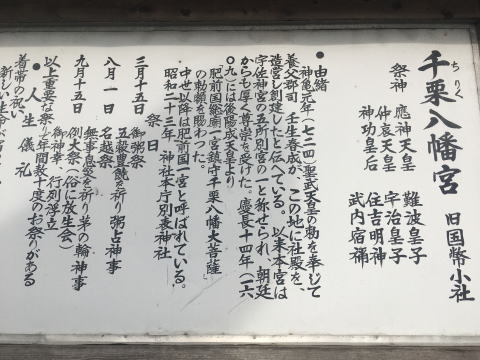 千栗八幡宮 旧国幣小社
ちりく
祭神 應神天皇 難波皇子
仲哀天皇 宇治皇子
神功皇后 住吉明神
武内宿禰
● 由緒
神亀元年(七二四)聖武天皇の勅を奉じて
養父郡司 壬生春成が、この地に社殿を、
造営し創建したと伝えている。以来本宮は
宇佐神宮の五所別宮の一と称せられ、朝廷
からも厚く尊崇を受けた。慶長十四年(一六
〇九)には後陽成天皇より
「肥前国総廟一宮鎮守千栗八幡大菩薩」
の勅額を賜わった。
中世以降は肥前国一宮と呼ばれている。
昭和二十三年、神社本庁別表神社
祭日
三月十五日 御粥祭
五穀豊饒を祈り 粥占神事
八月一日 名越祭
無事息災を祈り 茅の輪神事
九月十五日 例大祭(俗に放生会)
御神幸、行列浮立
以上重要な祭りで年間数十度のお祭りがある
● 人生儀礼
着帯の祝い
新しい生命が